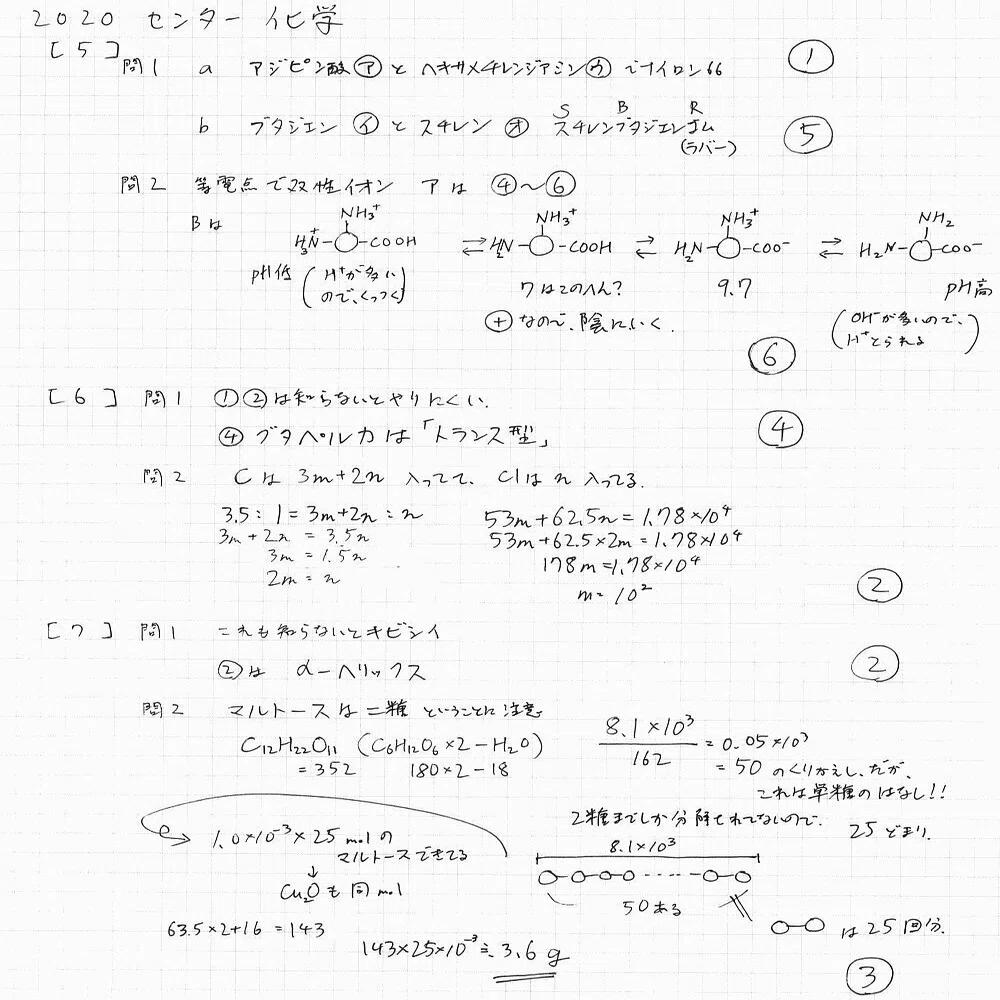 2020 センター 化学
[5] 問1 a アジピン酸㋐とヘキサメチレンジアミン㋒でナイロン66 ①
b ブタジエン ㋑ と スチレン ㋔ スチレンブタジエンゴム ⑤
S B R
(ラバー)
問2 等電点で双性イオン アは ④〜⑥
Bは
NH₃⁺ NH₃⁺ NH₃⁺ NH₂
H₃N⁺-○-COOH ⇄ H₂N-○-COOH ⇄ H₂N-○-COO⁻ ⇄ H₂N-○-COO⁻
pH低 (H⁺が多いので、くっつく) 7はこのへん? 9.7 pH高
⊕なので、陰にいく. (OH⁻が多いので、H⁺とられる)
⑥
[6] 問1 ①②は知らないとやりにくい.
④ グタペルカは「トランス型」 ④
問2 Cは 3m+2n 入ってて、Clは n 入ってる.
3.5:1=3m+2n:n 53m+62.5n=1.78×10⁴
3m+2n=3.5n 53m+62.5×2m=1.78×10⁴
3m=1.5n 178m=1.78×10⁴
2m=n m=10²
②
[7] 問1 これも知らないとキビシイ
②は α-ヘリックス ②
問2 マルトースは二糖 ということに注意
C₁₂H₂₂O₁₁ (C₆H₁₂O₆×2-H₂O)
=352 180×2-18
8.1×10³/162=0.05×10³
=50 のくりかえし、だが、
これは単糖のはなし!!
2糖までしか分解されてないので. 25どまり.
1.0×10⁻³×25 molの
マルトースできてる
↓
Cu₂Oも同mol
8.1×10³
○-○-○-○-----○-○
50ある
○-○ は25回分.
63.5×2+16=143
143×25×10⁻³≒3.6g
③